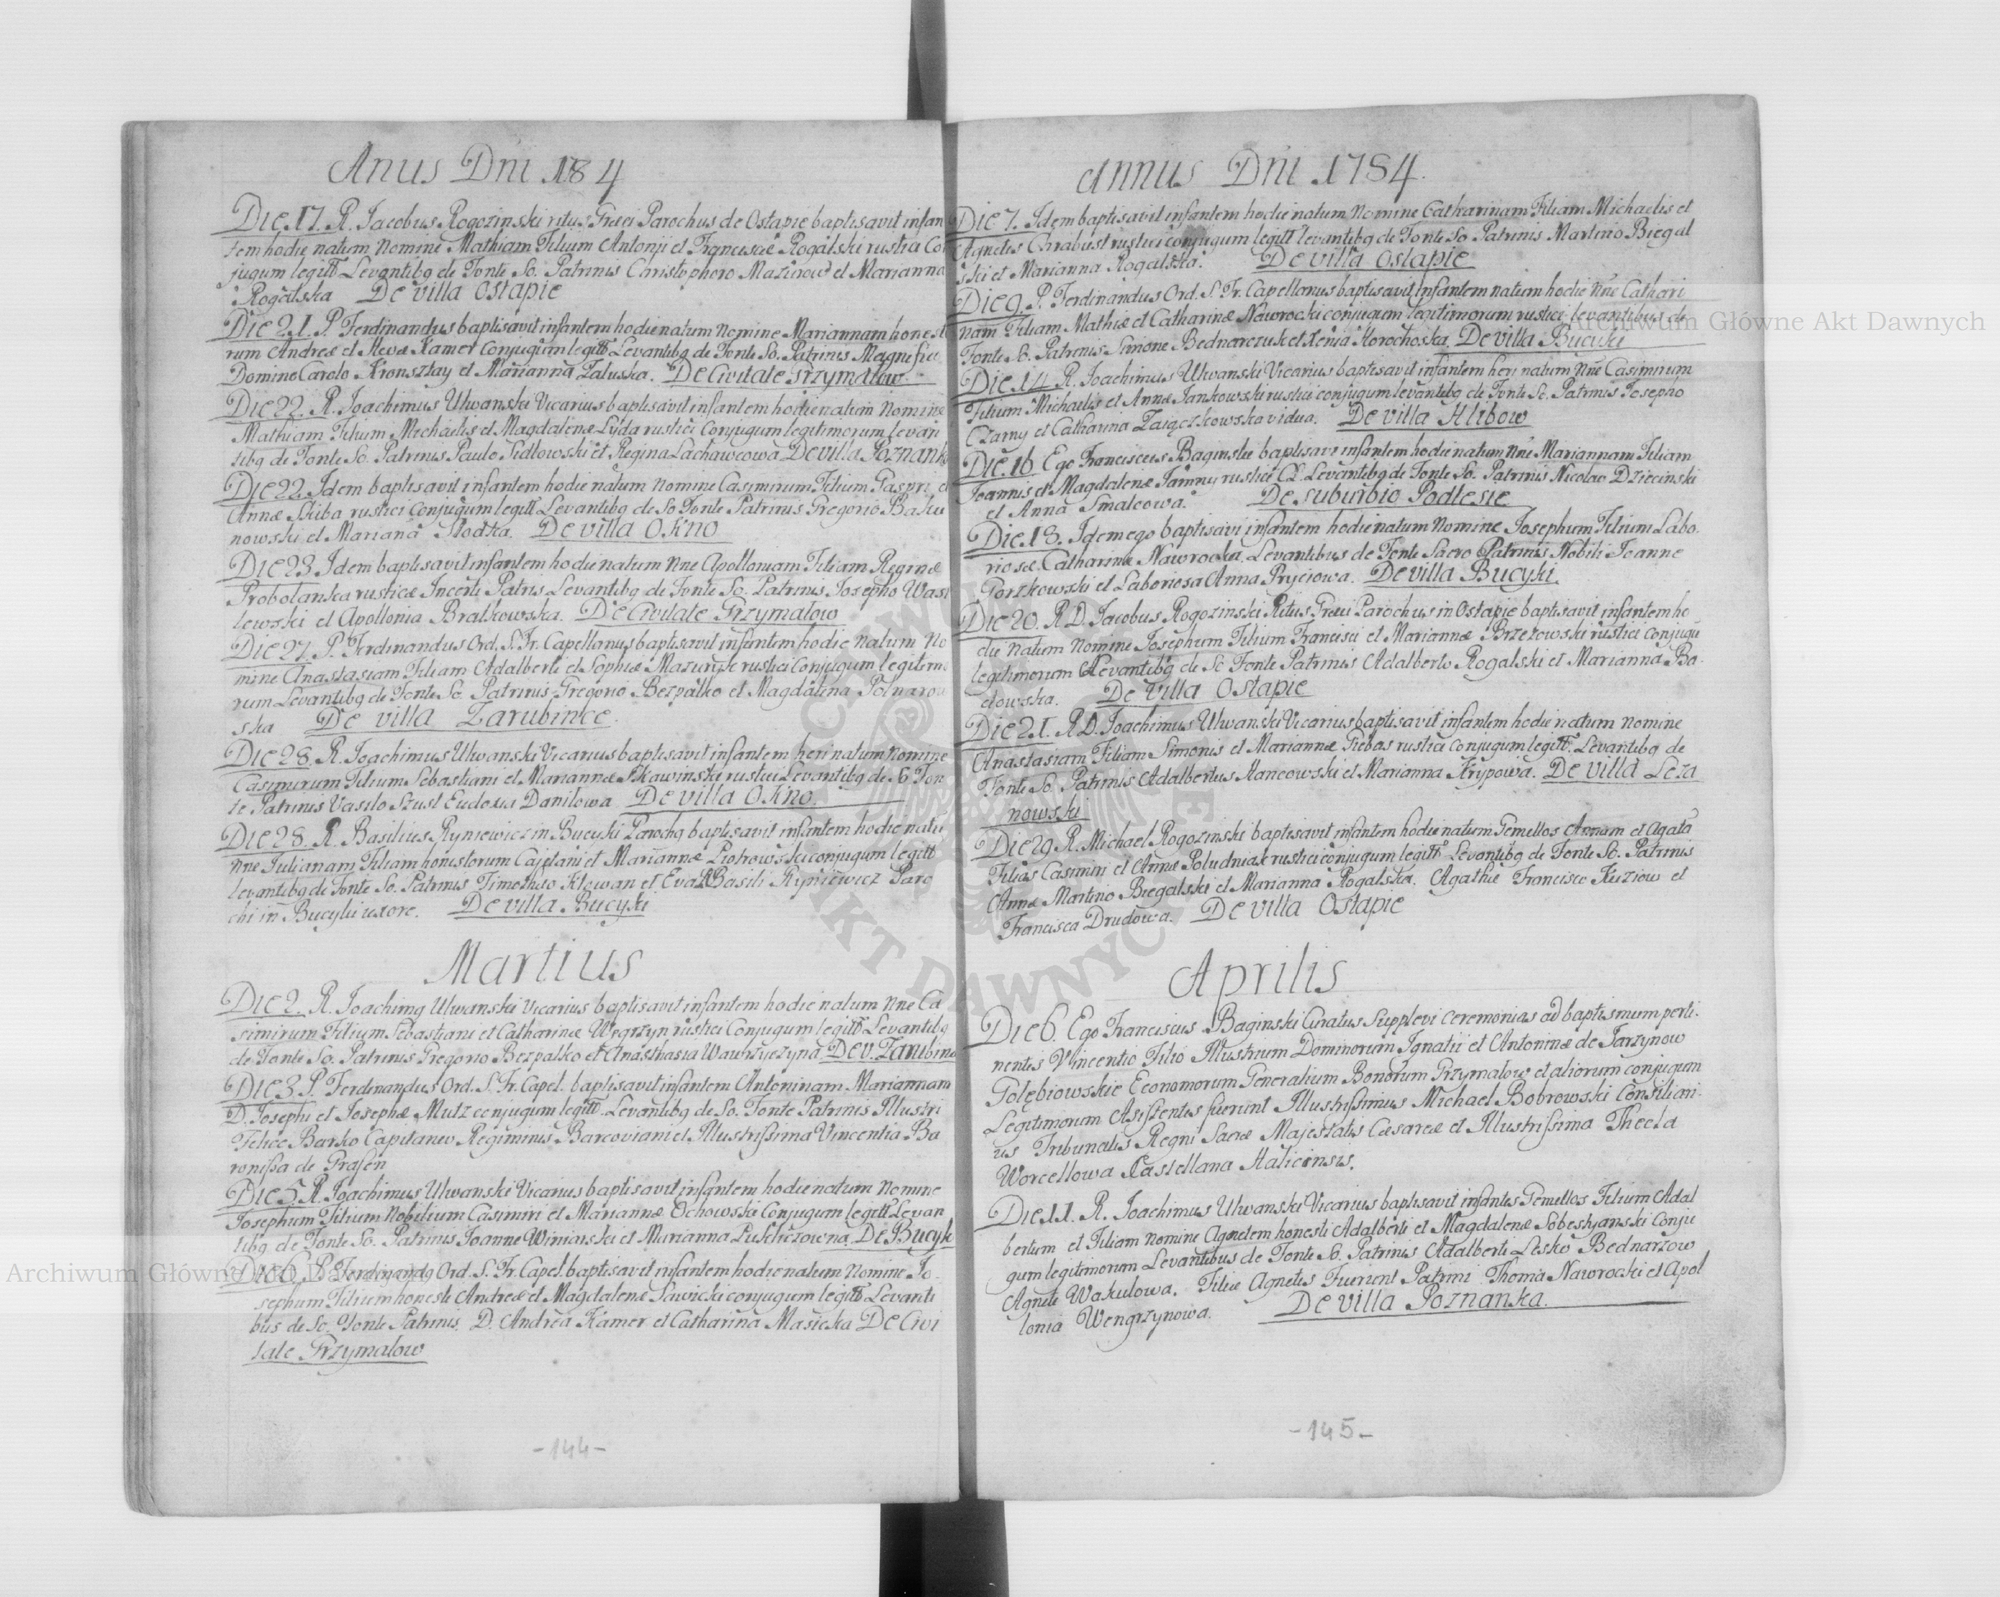 Anus Dni 184
Die 17. R. Jacobus Rogozinski ritus Graeci Parochus de Ostapie baptisavit infan
tem hodie natum Nomine Mathiam Filium Antonji et Franciscae Rogalski rustici Con
jugum legitt. Levantibq de Fonte So. Patrinis Christophoro Mazurow et Marianna
Rogalska De villa Ostapie
Die 21. P. Ferdinandus baptisavit infantem hodie natum Nomine Mariannam honesto
rum Andreae et Evae Kamer Conjugum legitt. Levantibq de Fonte So. Patrinis Magnifico
Domino Carolo et Marianna Zaluska. De Civitate Grzymalow
Die 22. R. Joachimus Ulwanski Vicarius baptisavit infantem hodie natum Nomine
Mathiam Filium Michaelis et Magdalenae Lyda rustici Conjugum legitimorum levan
tibq de Fonte So. Patrinis Paulo Sidlowski et Regina Lachawcowa De villa Poznanka
Die 22. Idem baptisavit infantem hodie natum Nomine Casimirum Filium Gaspri et
Annae Skiba rustici Conjugum legitt. Levantibq de So Fonte Patrinis Gregorio Baku
nowski et Mariana Slodka. De villa Okno
Die 23. Idem baptisavit infantem hodie natum Nne Apolloniam Filiam Reginae
Probolanka rusticae Incerti Patris Levantibq de Fonte So. Patrinis Josepho Wasi
lewski et Apollonia Bratkowska. De Civitate Grzymalow
Die 27. P. Ferdinandus Ord. S. Fr. Capellonus baptisavit infantem hodie natum No
mine Anastasiam Filiam Adalberti et Sophiae Mazuryk rustici Conjugum legitimo
rum Levantibq de Fonte So. Patrinis Gregorio Bezpalko et Magdalena Polnarow
ska De villa Zarubince.
Die 28. R. Joachimus Ulwanski Vicarius baptisavit infantem heri natum Nomine
Casimirum Filium Sebastiani et Mariannae Skawinski rustici Levantibq de So Fon
te Patrinis Vasilo Szust Eudoxia Danilowa. De villa Okno.
Die 28. R. Basilius Ryniewicz in Bucyki Parochq baptisavit infantem hodie natu
Nne Julianam Filiam honestorum Cajetani et Mariannae Piotrowski conjugum legitt
levantibq de Fonte So. Patrinis Timotheo Klowan et Eva R Basili Ryniewicz Paro
chi in Bucyki uxore. De villa Bucyki
Martius
Die 2. R. Joachimq Ulwanski Vicarius baptisavit infantem hodie natum Nne Ca
simirum Filium Sebastiani et Catharinae Wegrzyn rustici Conjugum legitt Levantibq
de Fonte So. Patrinis Gregorio Bezpalko et Anasthasia Wawrzyczyna De v. Zarubince
Die 3. P. Ferdinandus Ord. S. Fr. Capel. baptisavit infantem Antoninam Mariannam
D. Josephi et Josephae Mutz conjugum legitt. Levantibq de So. Fonte Patrinis Illustri
Felice Barko Capitaneo Regiminis Barcoviani et Illustrissima Vincentia Ba
ronissa de Grasen
Die 5. R. Joachimus Ulwanski Vicarius baptisavit infantem hodie natum Nomine
Josephum Filium Nobilium Casimiri et Mariannae Ochowski Conjugum legitt Levan
tibq de Fonte So. Patrinis Joanne Winiarski et Marianna Puskiczowna. De Bucyk
Die 6. P. Ferdinandq Ord. S. Fr. Capel. baptisavit infantem hodie natum Nomine Jo
sephum Filium honesti Andreae et Magdalenae Sawicki conjugum legitt Levanti
bus de So. Fonte Patrinis. D. Andrea Kamer et Catharina Masicka De Civi
tate Grzymalow
-144-
Annus Dni 1784.
Die 7. Idem baptisavit infantem hodie natum Nomine Catharinam Filiam Michaelis et
Agnetis Chrabust rustici conjugum legitt levantibq de Fonte So Patrinis Martino Biegal
ski et Marianna Rogalska. De villa Ostapie
Die 9. P. Ferdinandus Ord. S. Fr. Capellonus baptisavit Infantem natum hodie Nne Cathari
nam Filiam Mathiae et Catharinae Nawrocki conjugum legitimorum rustici levantibus de
Fonte So. Patrinis Simone Bednarczuk et Xenia Horochoska. De villa Bucyki
Die 14. R. Joachimus Ulwanski Vicarius baptisavit infantem heri natum Nne Casimirum
Filium Michaelis et Annae Jankowski rustici conjugum levantibq de Fonte So. Patrinis Josepho
Czarny et Catharina Zaiączkowska vidua. De villa Hlibow
Die 16. Ego Franciscus Baginski baptisavi infantem hodie natum Nne Mariannam Filiam
Joannis et Magdalenae Tamny rustici CL. Levantibq de Fonte So. Patrinis Nicolao Dziecinski
et Anna Smalcowa. De suburbio Podlesie
Die 18. Idem ego baptisavi infantem hodie natum Nomine Josephum Filium Labo
riosae Catharinae Nawrocka. Levantibus de Fonte Sacro Patrinis Nobili Joanne
Gorzkowski et Laboriosa Anna Pryciowa. De villa Bucyki.
Die 20. R. D. Jacobus Rogozinski Ritus Graeci Parochus in Ostapie baptisavit infantem ho
die natum Nomine Josephum Filium Francisci et Mariannae Brzezowski rustici conjugu
legitimorum Levantibq de So Fonte Patrinis Adalberto Rogalski et Marianna Ba
dowska. De villa Ostapie
Die 21. R. D. Joachimus Ulwanski Vicarius baptisavit infantem hodie natum nomine
Anastasiam Filiam Simonis et Mariannae Giebas rustici conjugum legitt. Levantibq de
Fonte So. Patrinis Adalbertus Hancowski et Marianna Krypowa. De villa Leza
nowski
Die 29. R. Michael Rogozinski baptisavit infantem hodie natum Gemellos Annam et Agata
Filias Casimiri et Annae Poludniak rustici conjugum legitt Levantibq de Fonte So. Patrinis
Annae Martino Biegalski et Marianna Rogalska. Agathae Francisco Kuziow et
Francisca Drudowa. De villa Ostapie
Aprilis
Die 6. Ego Franciscus Baginski Curatus Supplevi ceremonias ad baptismum perti
nentes Vincentio Filio Illustrium Dominorum Ignatii et Antoninae de Jarzynow
Golębiowskie Economorum Generalium Bonorum Grzymalow et aliorum conjugum
Legitimorum Asistentes fuerunt Illustrissimus Michael Bobrowski Consiliari
us Tribunalis Regni Sacrae Majestatis Caesareae et Illustrissima Thecla
Worcellowa Castellana Halicensis.
Die 11. R. Joachimus Ulwanski Vicarius baptisavit infantes Gemellos Filium Adal
bertum et Filiam nomine Agnetem honesti Adalberti et Magdalenae Sobestyanski Conju
gum legitimorum Levantibus de Fonte So. Patrinis Adalberti Lesko Bednarzow
Agneti Wakulowa. Filiae Agnetis Fuerunt Patrini Thoma Nawrocki et Apol
lonia Wengrzynowa. De villa Poznanka.
-145-
Archiwum Główne Akt Dawnych
Archiwum Główne Akt Dawnych
ARCHIWUM GŁÓWNE AKT DAWNYCH